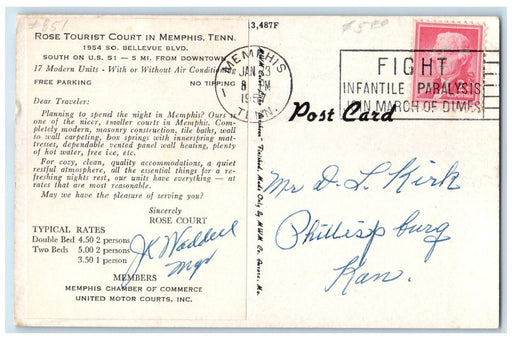 3,487F
ROSE TOURIST COURT IN MEMPHIS, TENN.
1954 SO. BELLEVUE BLVD.
SOUTH ON U.S. 51 — 5 MI. FROM DOWNTOWN
17 Modern Units - With or Without Air Conditioning
FREE PARKING NO TIPPING
Dear Traveler:
Planning to spend the night in Memphis? Ours is
one of the nicer, smaller courts in Memphis. Com-
pletely modern, masonry construction, tile baths, wall
to wall carpeting, box springs with innerspring matt-
resses, dependable vented panel wall heating, plenty
of hot water, free ice, etc.
For cozy, clean, quality accommodations, a quiet
restful atmosphere, all the essential things for a re-
freshing nights rest, our units have everything — at
rates that are most reasonable.
May we have the pleasure of serving you?
Sincerely
ROSE COURT
TYPICAL RATES
Double Bed 4.50 2 persons
Two Beds 5.00 2 persons
3.50 1 person
JK Waddell
Mgr
MEMBERS
MEMPHIS CHAMBER OF COMMERCE
UNITED MOTOR COURTS, INC.
MEMPHIS
JAN 3
TENN.
FIGHT
INFANTILE PARALYSIS
JOIN MARCH OF DIMES
Post Card
Mr D. L. Kirk
Phillispburg
Kan.